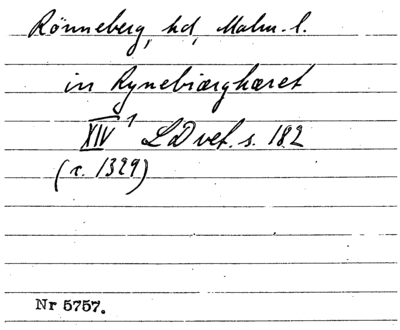 Rönneberg, hd, Malm. l.
in Rynebiærghæret
XIV 1 LDvet. s. 182
(c. 1329)
Nr 5757.